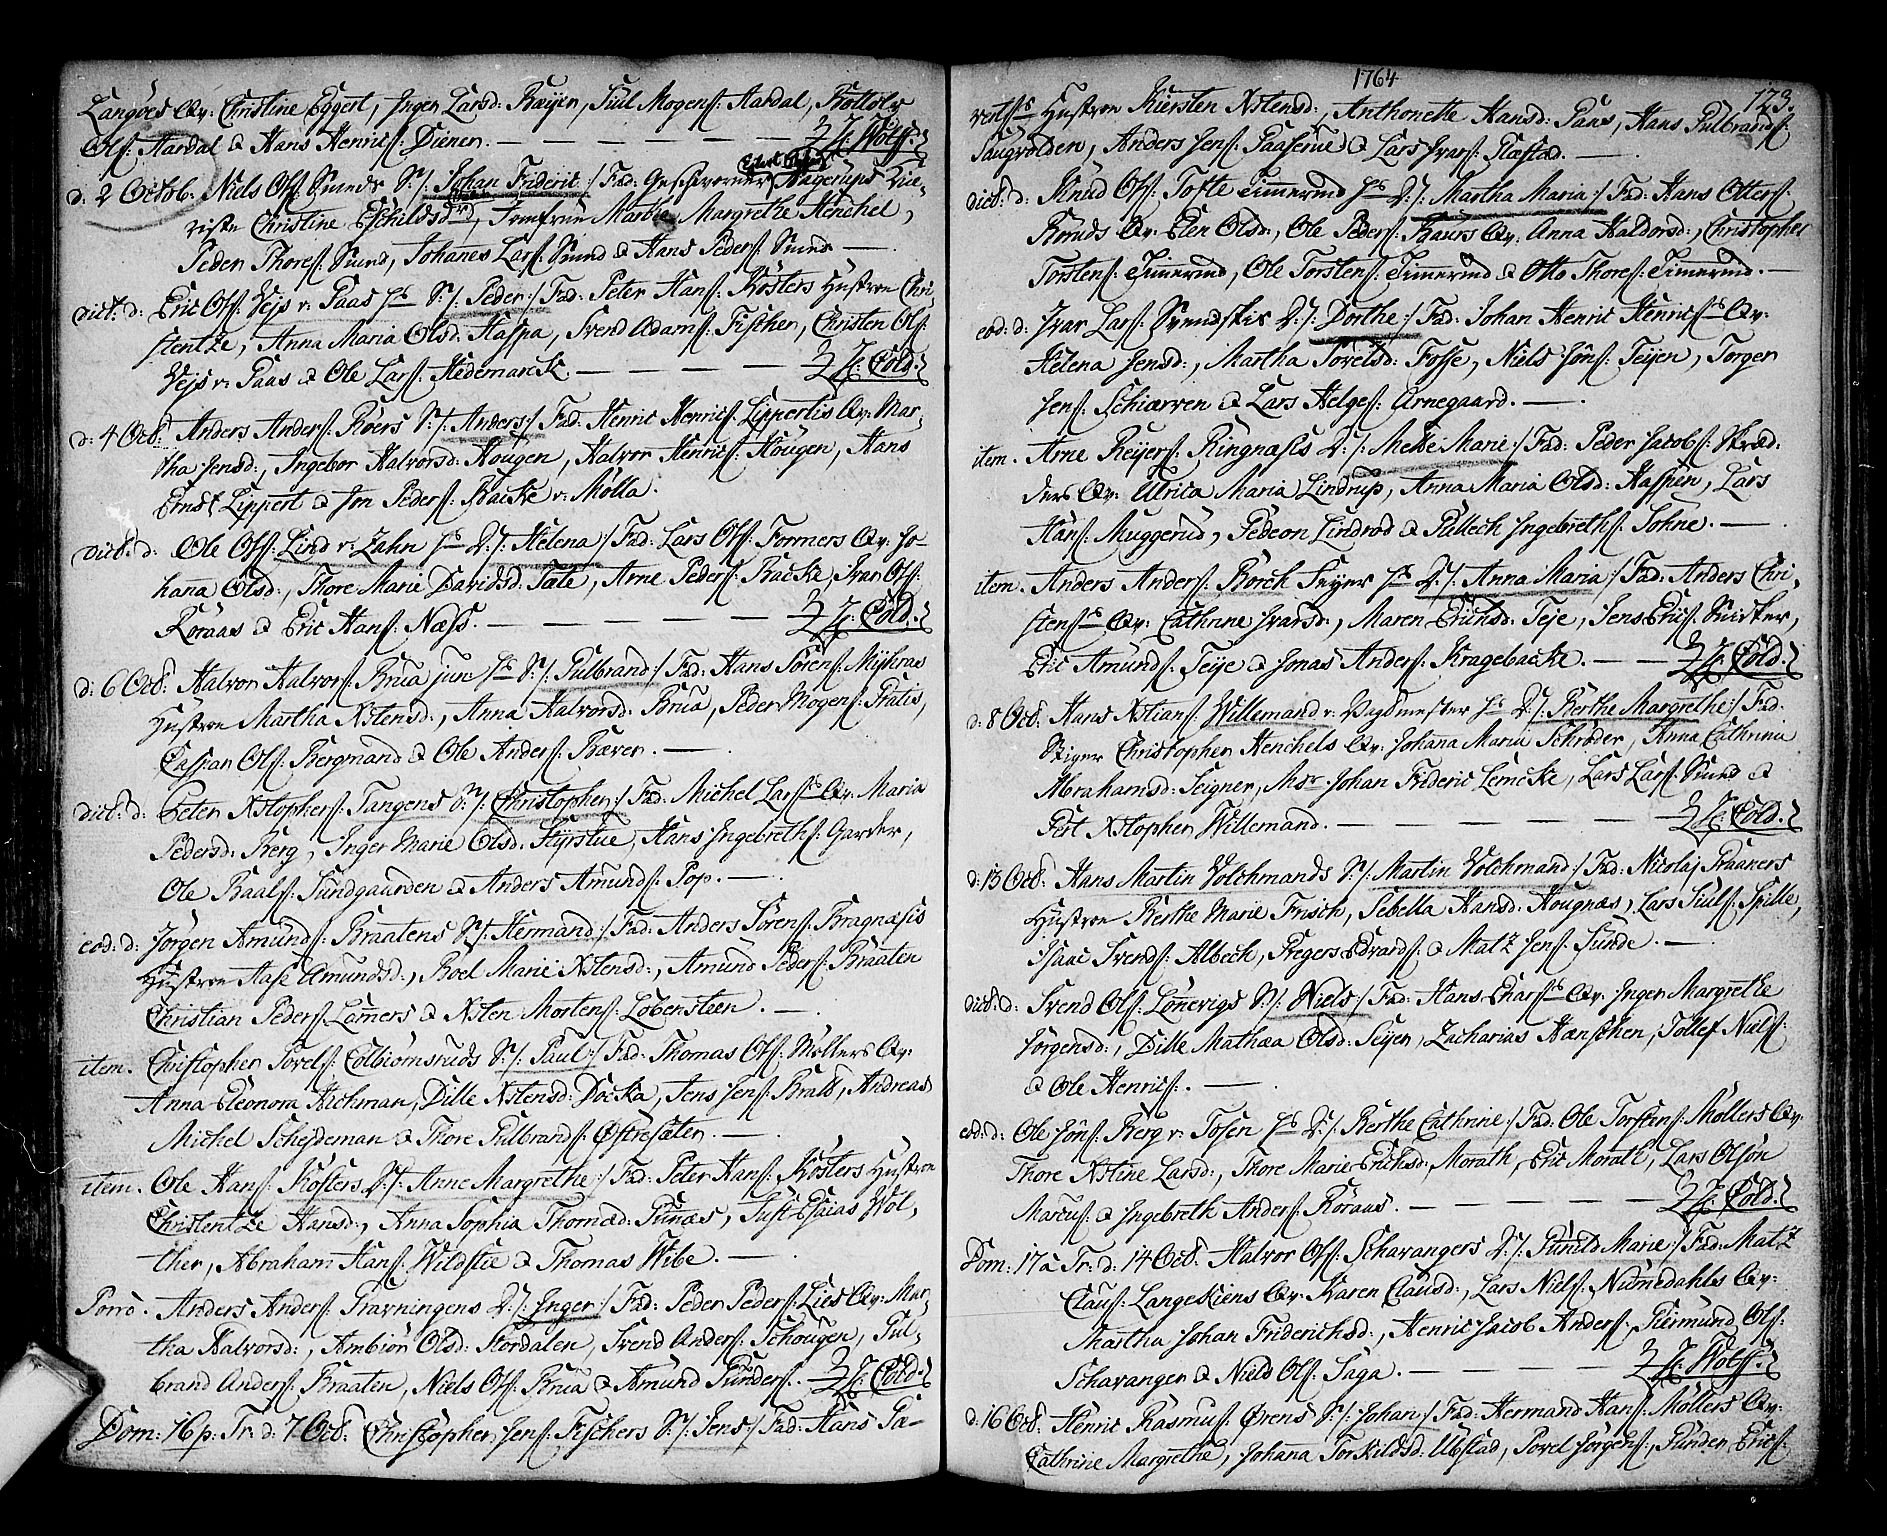 Langöes Qv: Christine Eggert, Inger Larsd: Bøyen, Juul Mogens: Aardal, Bottolv
Ols: Aardal & Hans Henrics: Diener. — — — — J. Wolff.
d. 2 Octob: Niels Ols: Smeds S: /: Johan Frideric :/ Fad: Geschworner Nagerups
Christine Eschildsd:, Jomfrue Margrethe Henchel,
Peder Thores: Smed, Johanes Lars: Smed & Hans Peders: Smed —
dict: d: Eric Ols: Vejs v: Saas S: /: Peder :/ Fad: Peter Hans: Kösters Hustroe Chri-
stentze, Anna Maria Olsd: Haspa, Svend Adams: Fischer, Christen Ols:
Vejs v: Saas & Ole Lars: Hedemarck. — — — — J. Cold.
d: 4 Octb: Anders Anders: Röers S: /: Anders :/ Fad: Henric Henrics: Lippertis Qv: Mar-
tha Jensd:, Ingebor Halvorsd: Hougen, Halvor Henrics: Hougen, Hans
Ernst Lippert & Jon Peders: Backe v: Mölla.
dict: d. Ole Ols: Lind v: Zahn D: /: Helena :/ Fad: Lars Ols: Formers Qv: Jo-
hana Olsd:, Thore Marie Davidsd: Tale, Arne Peders: Backe, Ivar Ols:
Röraas & Eric Hans: Næss. — — — — J. Cold.
d: 6 Octb: Halvor Halvors: Brua jun: S: /: Gulbrand :/ Fad: Hans Sörens: Myhras
Hustroe Martha Xstensd:, Anna Halvorsd: Brua, Peder Mogens: Gratis,
Caspar Ols: Bergmand & Ole Anders: Bæver. —
dict: d: Peter Xstophers: Tangens S: /: Christopher :/ Fad: Michel Lars: Qv: Maria
Pedersd: Berg, Inger Marie Olsd: Styrstue, Hans Ingebreths: Garder,
Ole Baals: Sundgaarden & Anders Amunds: Pop. —
eod: d: Jörgen Amunds: Braatens S: /: Hermand :/ Fad: Anders Sörens: Bragnæsis
Hustroe Aase Amundsd:, Roel Marie Xstensd:, Amund Peders: Braaten
Christian Peders: Lamers & Xsten Mortens: Lobensteen. —
item. Christopher Povels: Colbiornsruds S: /: Paul :/ Fad: Thomas Ols: Möllers Qv:
Anna Eleonora Aichman, Dille Xstensd: Docka, Jens Jens: Brattt, Andreas
Michel Schejdeman & Thore Gulbrands: Östresæter. —
item. Ole Hans: Kösters D: /: Anne Margrethe :/ Fad: Peter Hans: Kösters Hustroe
Christentze Hansd:, Anna Sophia Thomæd: Funæs, Just Esaias Wol-
ther, Abraham Hans: Wildstie & Thomas Wibe. —
Porro. Anders Anders: Gravningens D: /: Inger :/ Fad: Peder Peders: Lies Qv: Mar-
tha Halvorsd:, Ambiör Olsd: Stordalen, Svend Anders: Schougen, Gul-
brand Anders: Braaten, Niels Ols: Brua & Amund Gunders: — J. Cold.
Dom: 16 p. Tr: d: 7 Octb: Christopher Jens: Fischers S: /: Jens :/ Fad: Hans
1764
123.
Hustroe Kiersten Xstensd:, Anthonette Hansd: Paus, Hans Gulbrands:
Saugvolden, Anders Jens: Paaserud & Lars Ivars: Flæstad. —
dict: d: Knud Ols: Tofte Timerm: D: /: Martha Maria :/ Fad: Hans Otters:
Roruds Qv: Elen Olsd:, Ole Peders: Haurs Qv: Anna Haldorsd:, Christopher
Torstens: Timermd, Ole Torstens: Timermd & Otto Thores: Timermd. —
eod: d: Ivar Lars: Svendskis D: /: Dorthe :/ Fad: Johan Henric Henrics: Qv:
Helena Jensd:, Martha Povelsd: Fosse, Niels Jöns: Teijen, Torger
Jens: Schiærven & Lars Helges: Arnegaard. —
item. Arne Reijers: Ringnæsis D: /: Mette Marie :/ Fad: Peder Jacobs: Skræd-
ders Qv: Ulrica Maria Lindrup, Anna Maria Olsd: Haspen, Lars
Hans: Muggerud, Gedeon Lindrod & Gullech Ingebreths: Sohne. —
item. Anders Anders: Borch Feyer D: /: Anna Maria :/ Fad: Anders Chri-
stens: Qv: Cathrine Ivarsd:, Maren Ericksd: Teje, Jens Erics: Snidker,
Eric Amunds: Teije & Jonas Anders: Kragebacke. — — J. Cold.
d: 8 Octb: Hans Xstians: Willemand v: Vagdmester D: /: Berthe Margrethe :/ Fad:
Stiger Christopher Henchels Qv: Johana Maria Schröder, Anna Cathrina
Abrahamsd: Seigner, Msr Johan Frideric Lemcke, Lars Lars: Smed &
Pert Xstopher Willemand. — — — — J. Cold.
d: 13 Octb: Hans Martin Volchmands S: /: Martin Volchmand :/ Fad: Nicolaj Graaners
Hustroe Berthe Marie Frisch, Sebella Hansd: Hougnæs, Lars Juuls: Spille,
Isaac Svends: Albech, Gregers Edvards: & Matz Jens: Sunde. —
dict: d: Svend Ols: Lönevigs S: /: Niels :/ Fad: Hans Enars: Qv: Inger Margrethe
Jörgensd:, Dille Mathæa Olsd: Teijen, Zacharias Hænschen, Tollef Niels:
& Ole Henrics:. —
eod: d: Ole Jöns: Berg v: Tosen D: /: Berthe Cathrine :/ Fad: Ole Torstens: Möllers Qv:
Thore Xstine Larsd:, Thore Marie Erichsd: Morath, Eric Morath, Lars Olsön
Marcus: & Ingebreth Anders: Röraas. — — — — J. Cold.
Dom: 17 a Tr: d: 14 Octb: Halvor Ols: Schavangers D: /: Gunild Marie :/ Fad: Matz
Claus: Langeskiens Qv: Karen Clausd:, Lars Niels: Numedahls Qv:
Martha Johan Friderichsd:, Henric Jacob Anders:, Giermund Ols:
Schavanger & Niels Ols: Saga. — — — — J. Wolff.
d: 16 Octb: Henric Rasmus: Örens S: /: Johan :/ Fad: Hermand Hans: Möllers Qv:
Cathrine Margrethe, Johana Torkildsd: Ubstad, Povel Jörgens:, Gunder Erics: